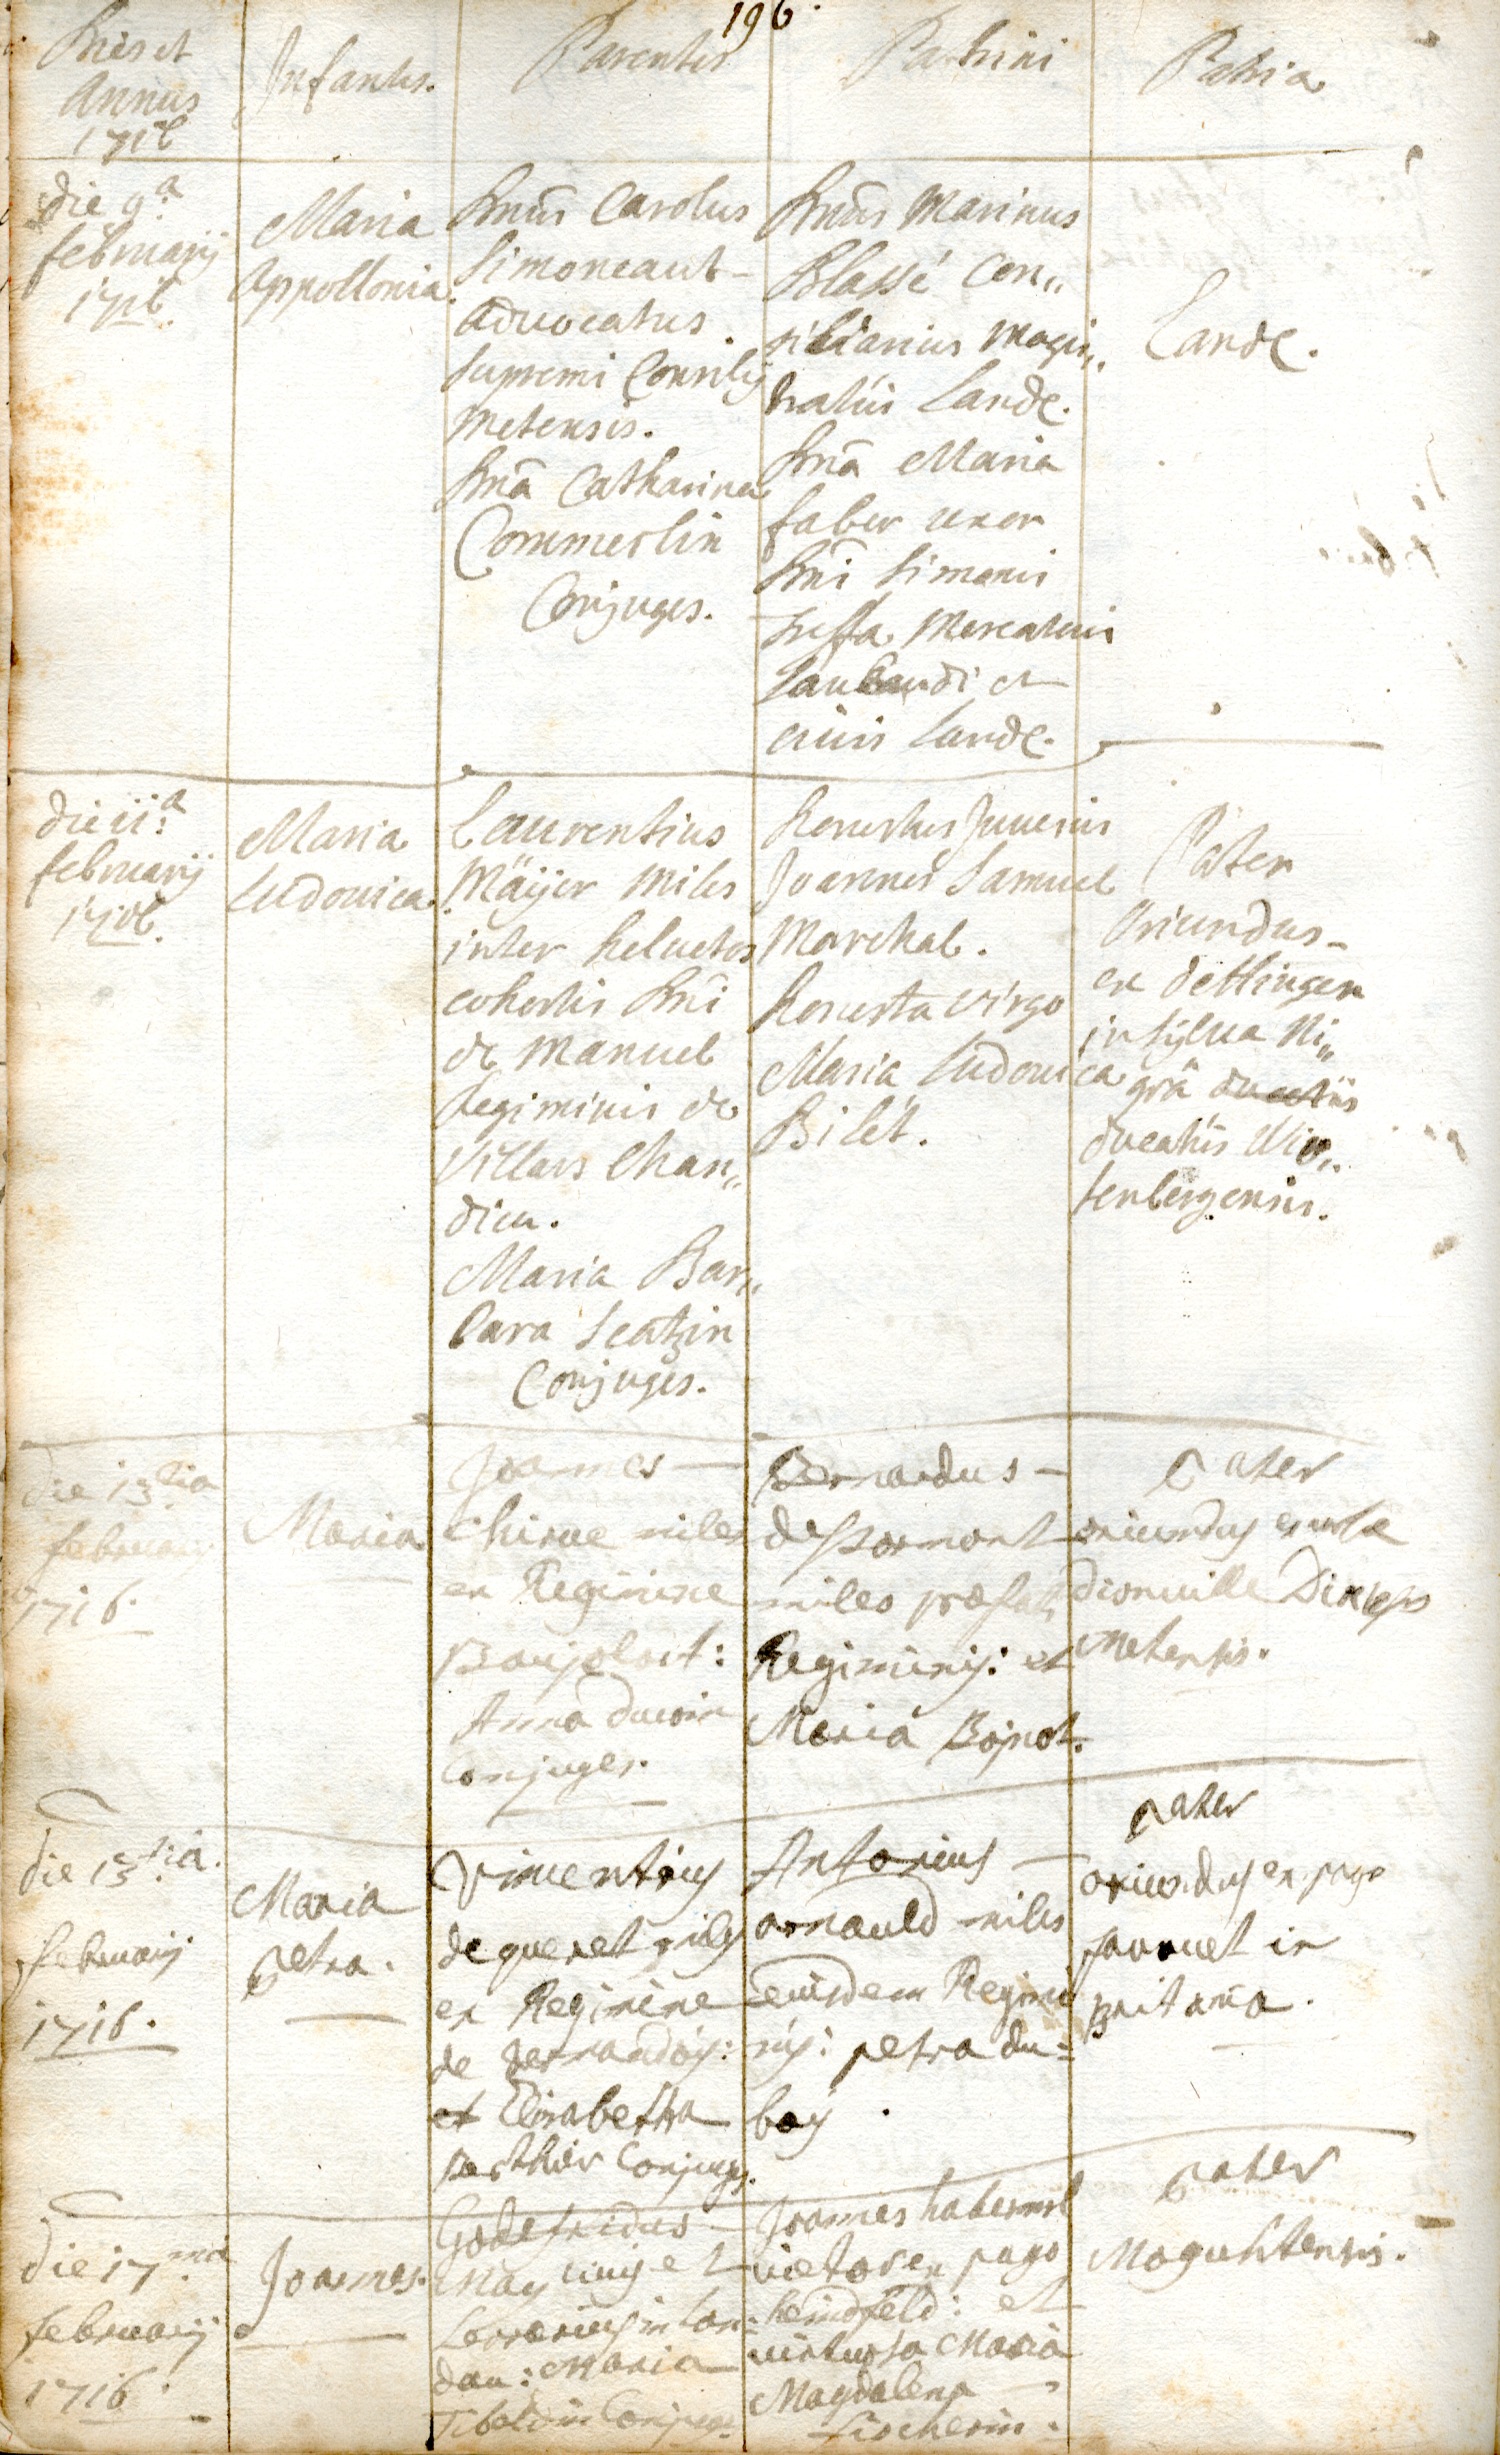 196.
Dies et
Annus
1716
Infantes.
Parentes
Patrini
Patria
die 9.a
februarij
1716.
Maria
Appollonia.
Dnus Carolus
Simoneaut
Advocatus
supremi Consilij
Metensis.
Dna Catharina
Commerlin
Conjuges.
Dnus Marinus
Blassé Con„
siliarius Magis„
tratus Landæ.
Dna Maria
faber uxor
Dni Simonis
Mercatoris
et
civis Landæ.
Landæ.
die 11.a
februarij
1716.
Maria
Ludovica.
Laurentius
Mäijer Miles
inter helvetos
cohortis Dni
de Manuel
Regiminis de
Villars Chan„
dieu.
Maria Bar„
bara Scatzin
Conjuges.
honestus Juvenis
Joannes Samuel
Marchal.
honesta virgo
Maria Ludovica
Bilét.
Pater
Oriundus
ex dettingen
in sylva Ni„
grâ
ducatûs Wir„
tenbergensis.
die 13.tia
februarij
1716.
Maria
Joannes
miles
ex Regimine
Baujolois:
Anna
Conjuges.
Bernardus
despormont
miles præfati
Regiminis: et
Maria Bojnot.
Pater
oriundus ex urbe
dionville Diœcesis
Metensis.
die 13.tia.
februarij
1716.
Maria
Petra.
Vincentius
de queret miles
ex Regimine
de
et Elisabetha
Berthier Conjuges.
Antonius
arnauld miles
eiusdem Regimi
nis: petra du=
boy.
Pater
oriundus ex pago
farouet in
Britania.
die 17.ma
februarij
1716.
Joannes.
Godefridus
et
in Lan:
dau: Maria
Conjuges.
Joannes
vietor ex pago
heinsfeld: et
virtuosa Maria
Magdalena
fischerin.
Pater
Moguntensis.